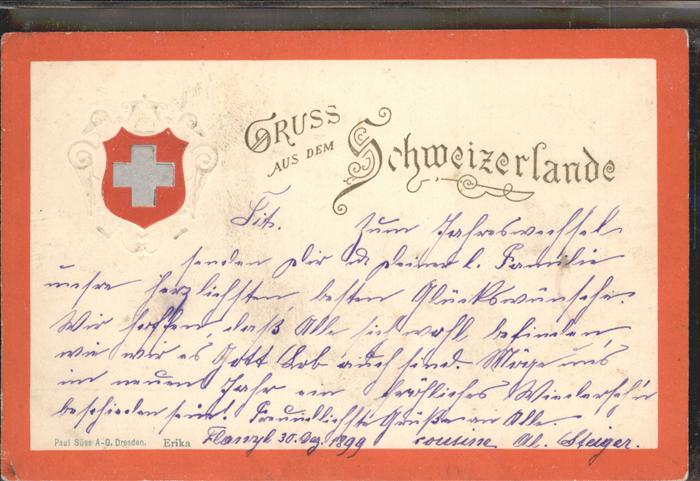 GRUSS
AUS DEM
Schweizerlande
Tit. Zum Jahreswechsel
senden Dir u Deiner l. Familie
unsre herzlichsten besten Glückswünsche.
Wir hoffen, daß Alle sich wohl befinden
wie wir es Gott Lob auch sind. Möge uns
im neuen Jahr ein fröhliches Wiederseh'n
beschieden sein! Freundlichste Grüße an Alle.
Paul Süss A-G. Dresden. Erika 30. Dez. 1899 cousine Al. Steiger.